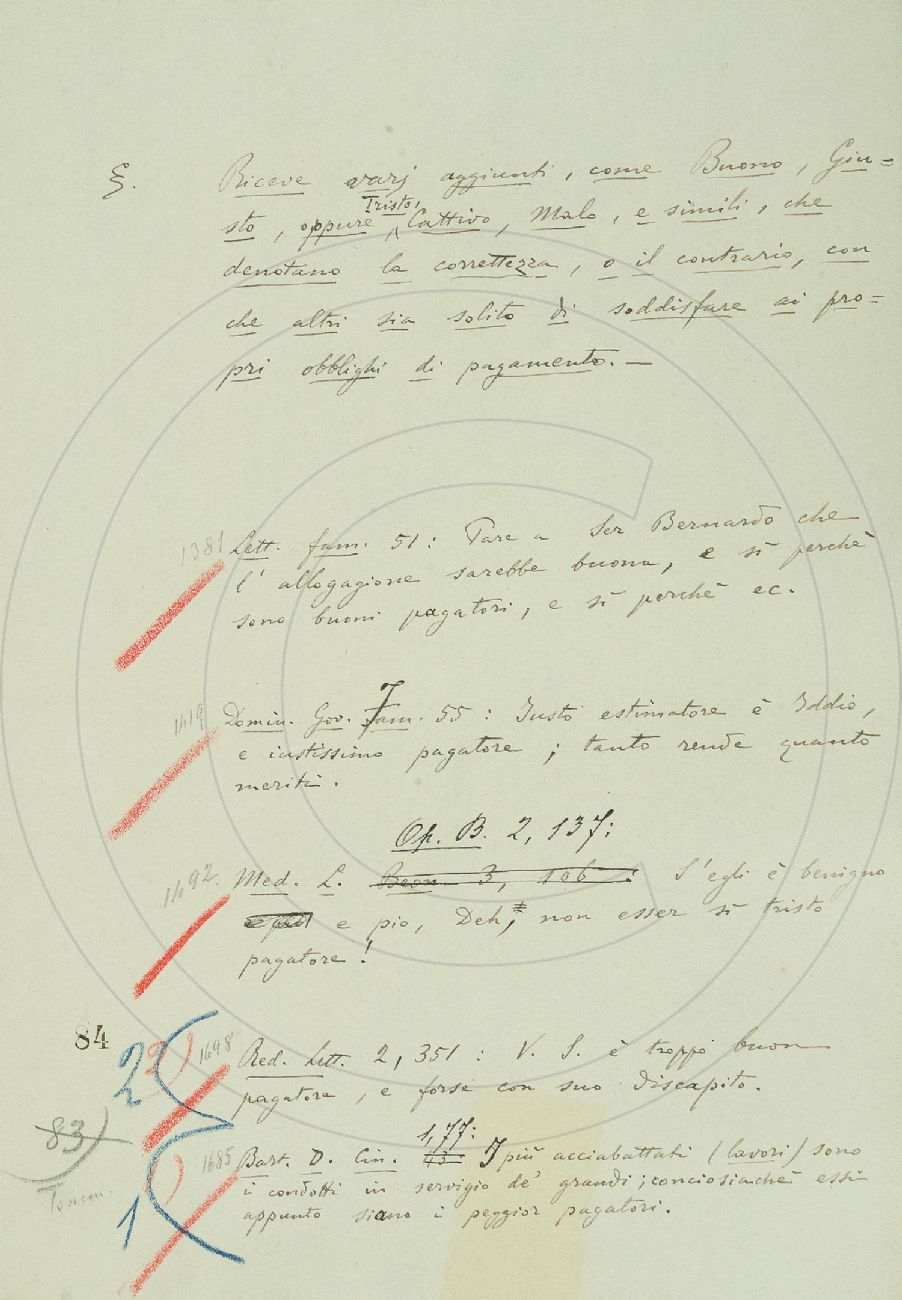 §. Riceve varj aggiunti, come Buono, Giu=
Tristo,
sto, oppure Cattivo, Malo, e simili, che
denotano la correttezza, o il contrario, con
che altri sia solito di soddisfare ai pro=
pri obblighi di pagamento. —
1381 Lett. fam. 51: Pare a Ser Bernardo che
l' allogagione sarebbe buona, e sì perchè
sono buoni pagatori, e sì perchè ec.
1419 Domin. Gov. Fam. 55: Iusto estimatore è Iddio,
e iustissimo pagatore; tanto rende quanto
meriti.
Op. B. 2, 137:
1492. Med. L. Beon. 3, 106: S'egli è benigno
e pio, Deh, non esser sì tristo
pagatore!
84
2
1698 Red. Lett. 2, 351: V. S. è troppo buon
pagatore, e forse con suo discapito.
83)
1,77:
1685 Bart. D. Cin. 43 I più acciabattati (lavori) sono
Tomm.
i condotti in servigio de' grandi; conciosiachè essi
1
appunto siano i peggior pagatori.